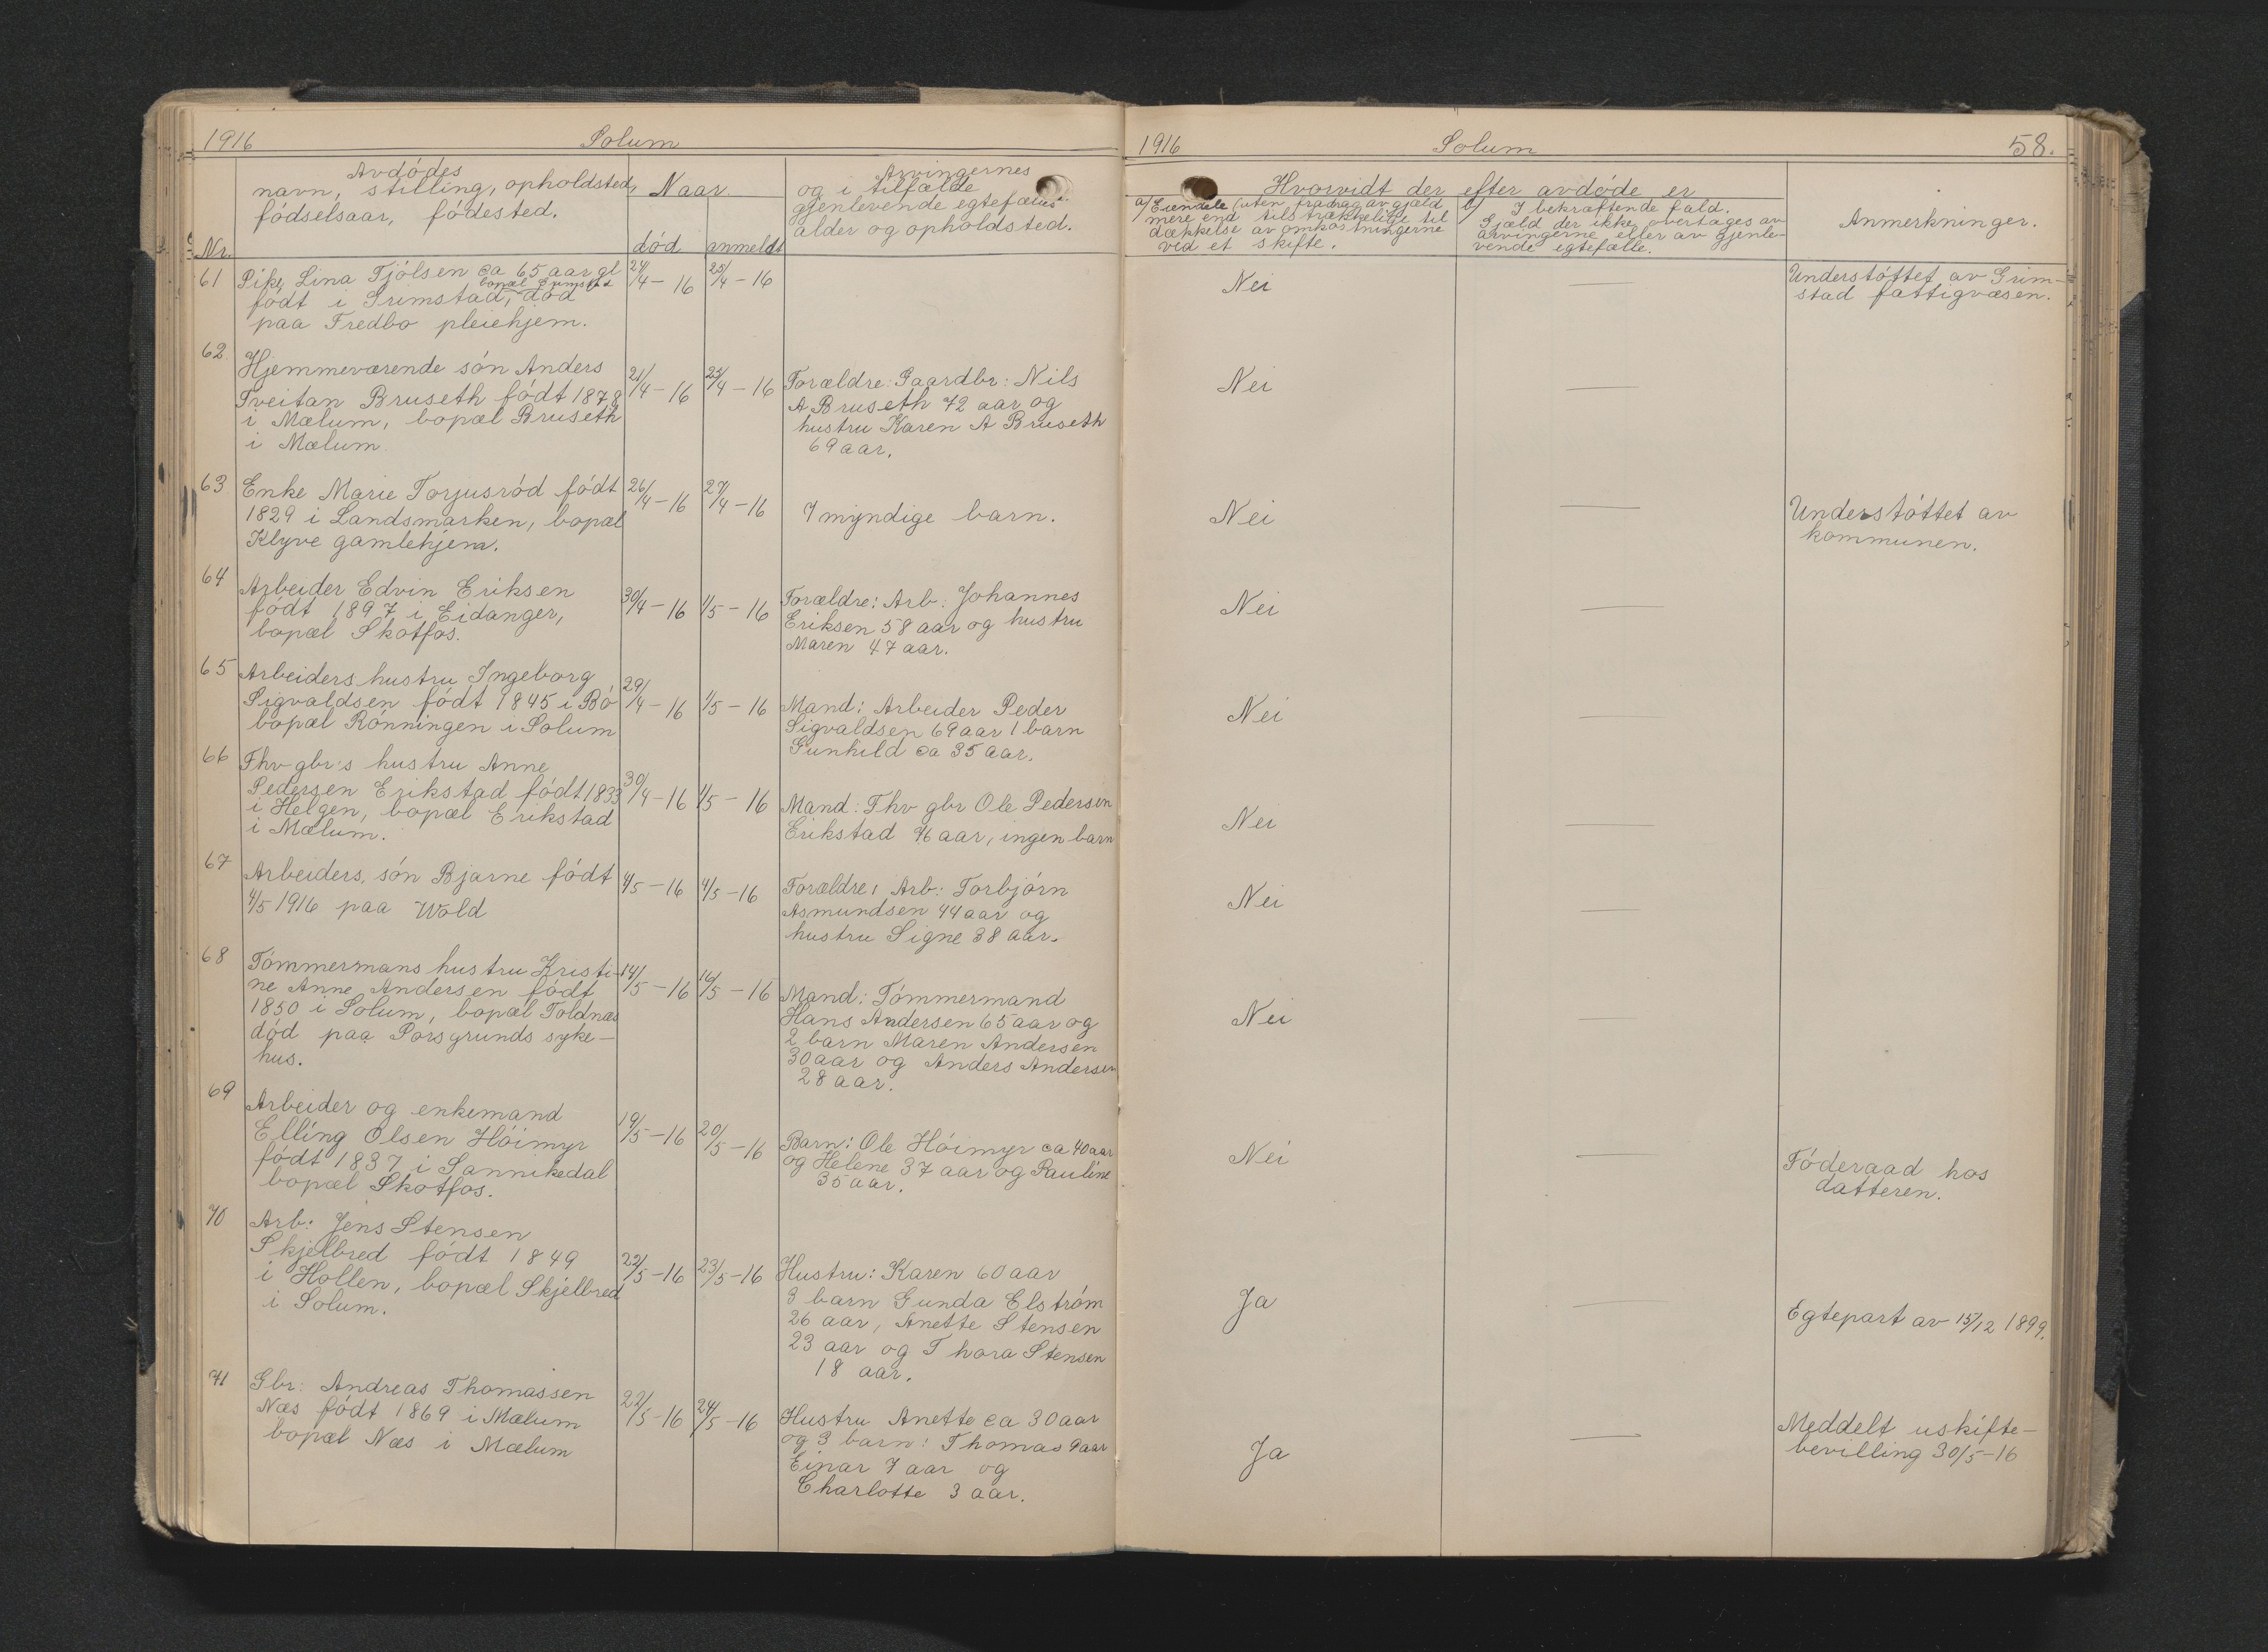 1916 Solum
Nr.
Avdödes
navn, stilling, opholdsted,
födselsaar, födested.
Naar.
död anmeldt
Arvingernes
og i tilfælde
gjenlevende egtefælles
alder og opholdsted.
61 Pike Lina Tjölsen ca 65 aar gl
bopæl Grimstad
födt i Grimstad, död
paa Fredbo pleiehjem.
24/4 - 16 25/4 - 16
62. Hjemmeværende sön Anders
Tveitan Bruseth födt 1878
i Mælum, bopæl Bruseth
i Mælum
21/4 - 16 25/4 - 16
Forældre: Gaardbr: Nils
A Bruseth 72 aar og
hustru Karen A Bruseth
69 aar.
63 Enke Marie Torjusröd födt
1829 i Landsmarken, bopæl
Klyve gamlehjem.
26/4 - 16 27/4 - 16
7 myndige barn.
64 Arbeider Edvin Eriksen
födt 1897 i Eidanger,
bopæl Skotfos.
30/4 - 16 1/5 - 16
Forældre: Arb: Johannes
Eriksen 58 aar og hustru
Maren 47 aar.
65 Arbeiders hustru Ingeborg
Sigvaldsen födt 1845 i Bö
bopæl Rönningen i Solum
29/4 - 16 1/5 - 16
Mand: Arbeider Peder
Sigvaldsen 69 aar 1 barn
Gunhild ca 35 aar.
66 Fhv gbr's hustru Anne
Pedersen Erikstad födt 1833
i Helgen, bopæl Erikstad
i Mælum.
30/4 - 16 1/5 - 16
Mand: Fhv gbr Ole Pedersen
Erikstad 76 aar, ingen barn
67 Arbeiders sön Bjarne födt
4/5 1916 paa Wold
4/5 - 16 4/5 - 16
Forældre: Arb: Torbjörn
Asmundsen 44 aar og
hustru Signe 38 aar.
68 Tömmermans hustru Kristi-
ne Anne Andersen födt
1850 i Solum, bopæl Toldnæs
död paa Porsgrunds syke-
hus.
14/5 - 16 16/5 - 16
Mand: Tömmermand
Hans Andersen 65 aar og
2 barn Maren Andersen
30 aar og Anders Andersen
28 aar.
69 Arbeider og enkemand
Elling Olsen Höimyr
födt 1837 i Sannikedal
bopæl Skotfos.
19/5 - 16 20/5 - 16
Barn: Ole Höimyr ca 40 aar
og Helene 37 aar og Pauline
35 aar.
70 Arb: Jens Stensen
Skjelbred födt 1849
i Hollen, bopæl Skjelbred
i Solum.
22/5 - 16 23/5 - 16
Hustru: Karen 60 aar
3 barn Gunda Elström
26 aar, Anette Stensen
23 aar og Thora Stensen
18 aar.
71 Gbr: Andreas Thomassen
Næs födt 1869 i Mælum
bopæl Næs i Mælum
22/5 - 16 24/5 - 16
Hustru Anette ca 30 aar
og 3 barn: Thomas 9 aar
Einar 7 aar og
Charlotte 3 aar.
1916 Solum 58.
Hvorvidt der efter avdöde er
a/ Eiendele (uten fradrag av gjæld
mere end tilstrækkelige til
dækkelse av omkostningerne
ved et skifte.
b/ I bekræftende fald.
Gjæld der ikke overtages av
arvingerne eller av gjenle-
vende egtefælle.
Anmerkninger.
Nei — Understöttet av Grim-
stad fattigvæsen.
Nei —
Nei — Understöttet av
kommunen.
Nei —
Nei —
Nei —
Nei —
Nei —
Nei — Föderaad hos
datteren.
Ja — Egtepart av 15/12 1899.
Ja — Meddelt uskifte-
bevilling 30/5-16